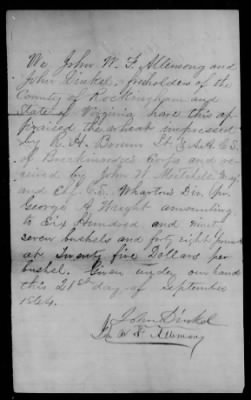 We John W. F. Allemong and
John Dinkel, freeholders of the
County of Rockingham and
State of Virginia have this ap-
praised the wheat impressed
by R. H. Brown Lt & A.A.C.S.
of Breckinridge's Corps and re-
ceived by John W. Mitchell Maj
and Chf. C.S. Wharton's Div. for
George A Wright amounting
to Six Hundred and Ninty
seven bushels and forty eight pounds
at Twenty five Dollars per
bushel. Given under our hand
this 21st day of September
1864.
John Dinkel
J. W. F. Allemong